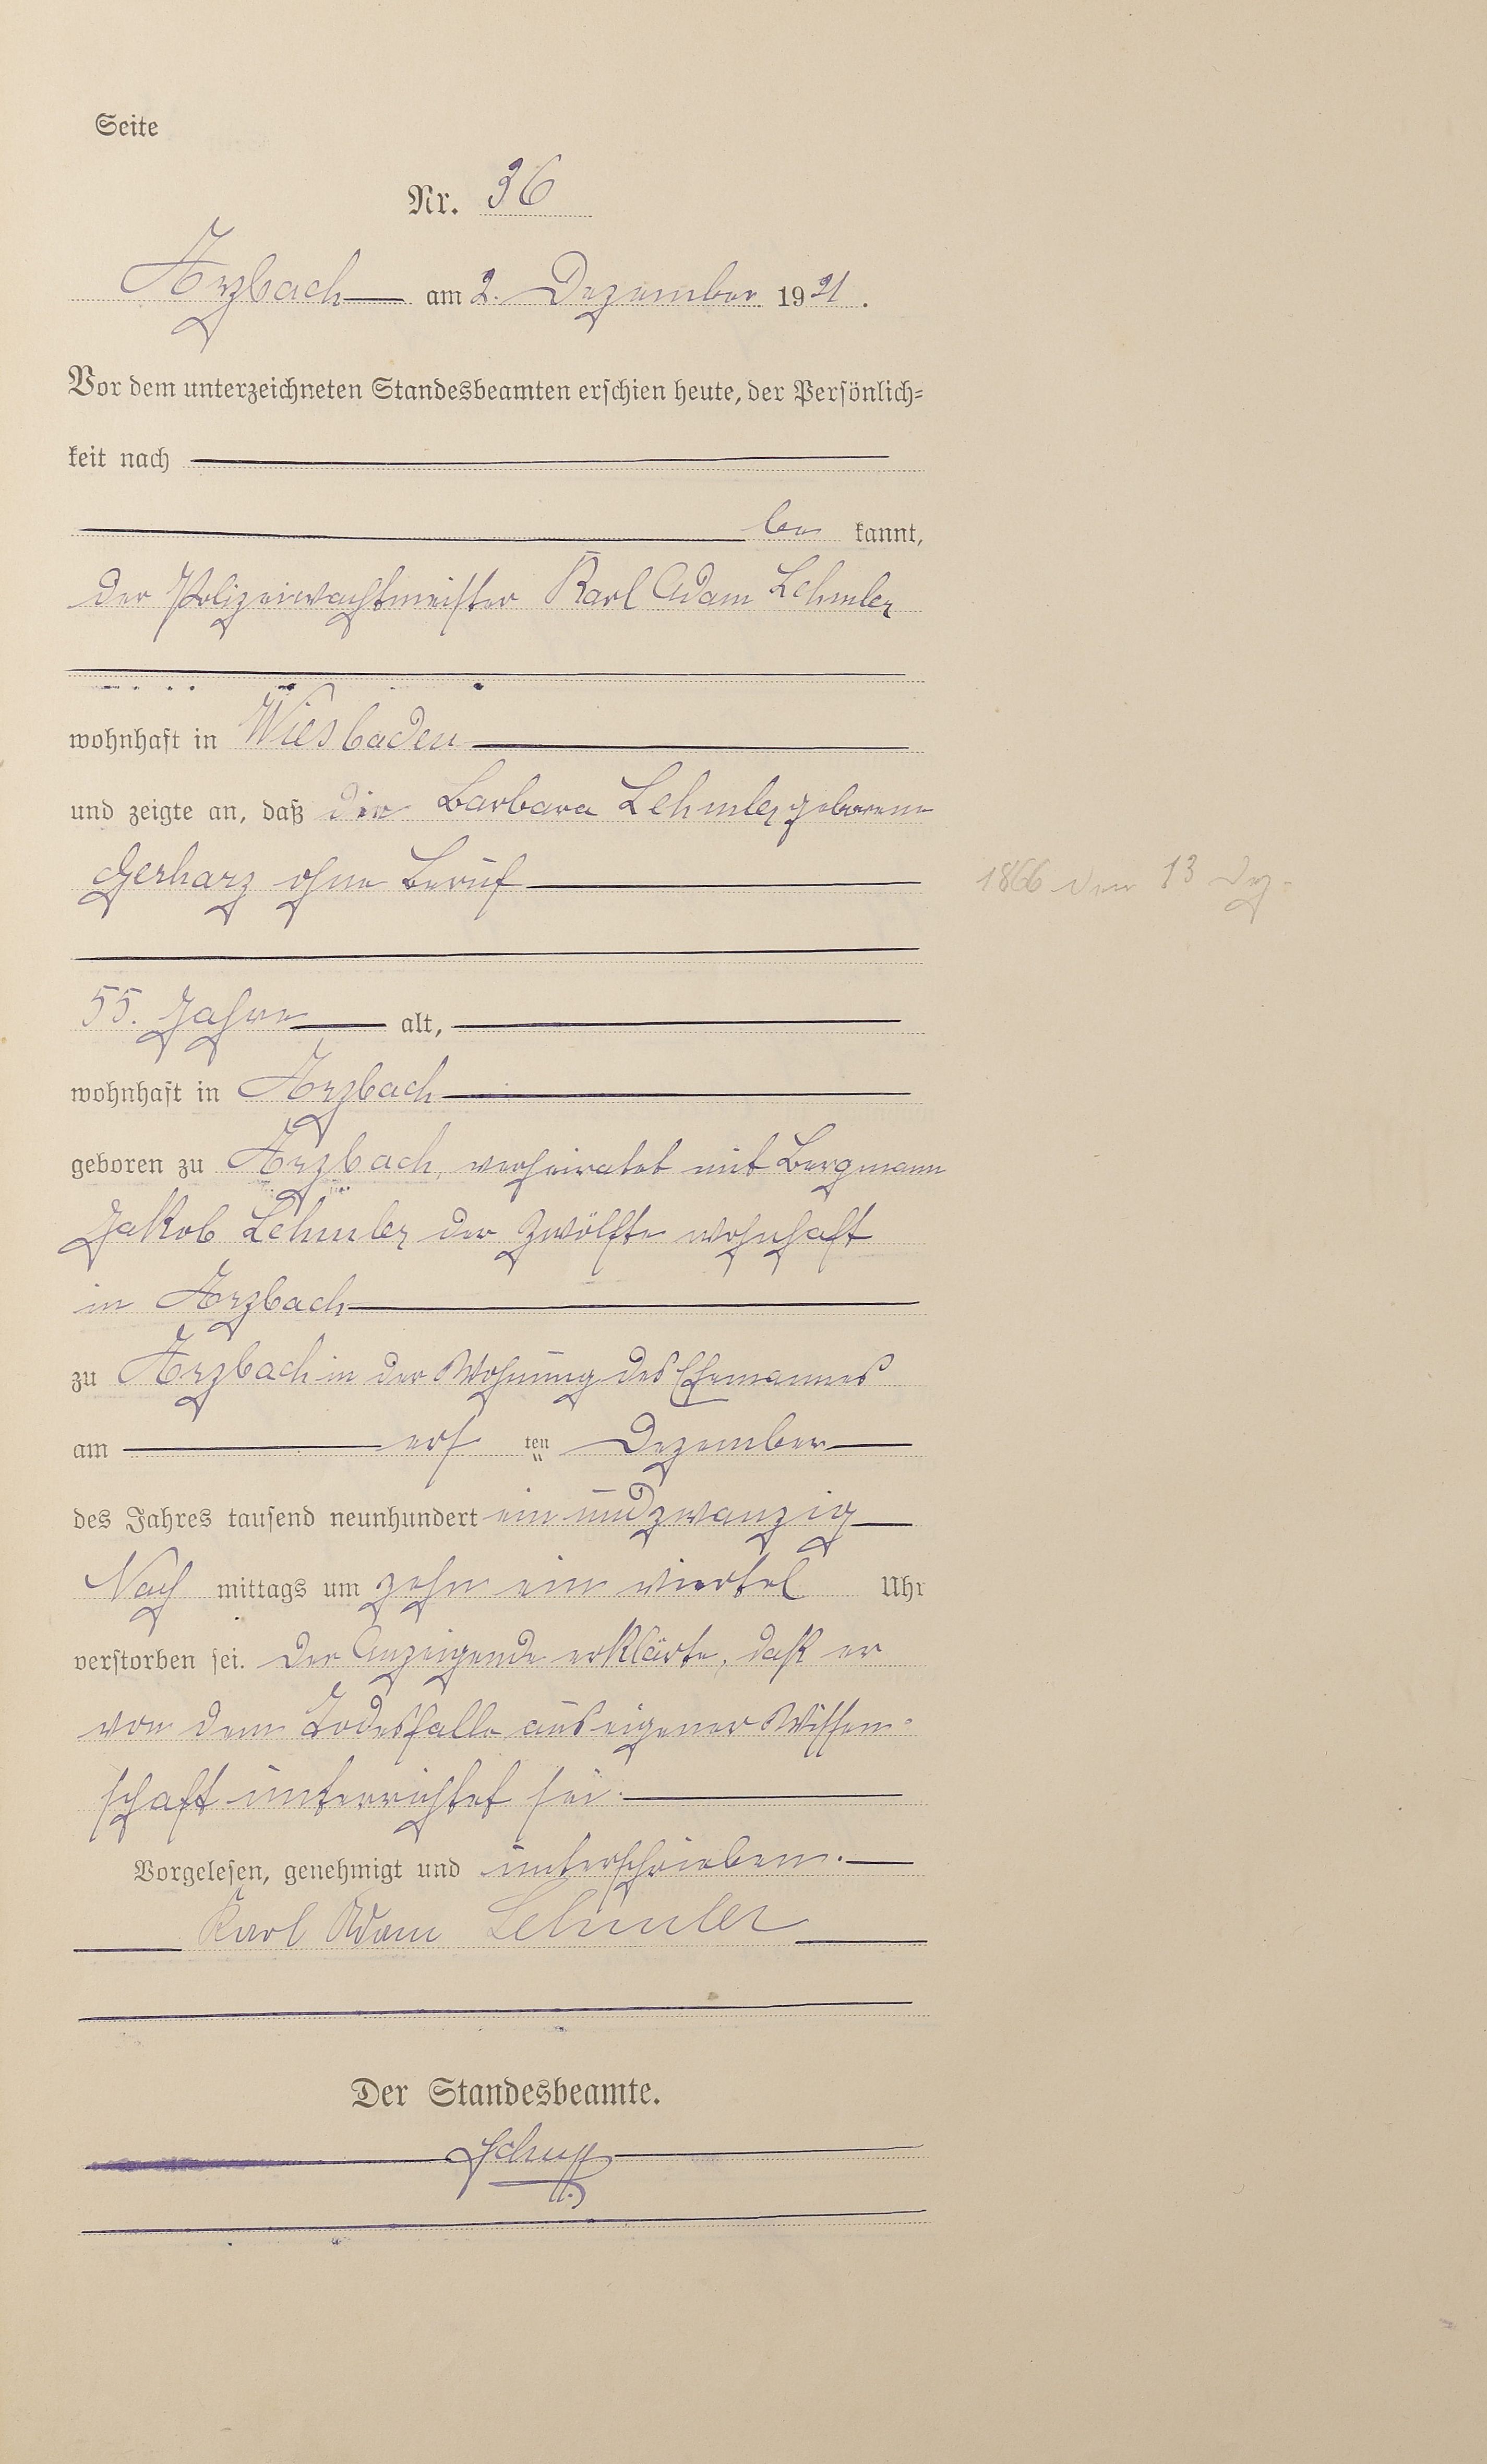 Seite
Nr. 36
Arzbach am 2. Dezember 1921.
Vor dem unterzeichneten Standesbeamten erschien heute, der Persönlich-
keit nach
be kannt,
der Polizeiwachtmeister Karl Adam Lehmler
wohnhaft in Wiesbaden
und zeigte an, daß die Barbara Lehmler geborene
Gerharz ohne Beruf
1866 den 13 Dez-
55. Jahre alt,
wohnhaft in Arzbach
geboren zu Arzbach, verheiratet mit Bergmann
Jakob Lehmler der Zwölfte wohnhaft
in Arzbach
zu Arzbach in der Wohnung des Ehemannes
am ers ten Dezember
des Jahres tausend neunhundert ein und zwanzig
Nach mittags um zehn ein viertel Uhr
verstorben sei. Der Anzeigende erklärte, daß er
von dem Todesfalle aus eigener Wissen-
schaft unterrichtet sei.
Vorgelesen, genehmigt und unterschrieben.
Karl Adam Lehmler
Der Standesbeamte.
Schupp